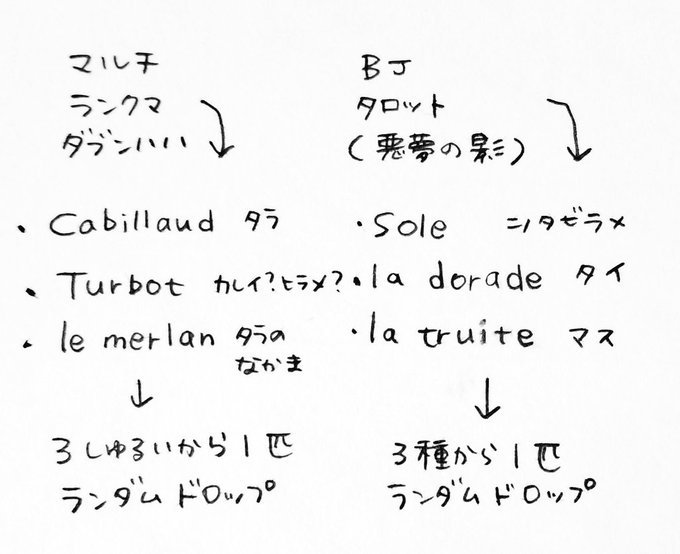 マルチ
ランクマ
ダブンハハ
・Cabillaud タラ
・Turbot カレイ?ヒラメ?
・le merlan タラの
なかま
3しゅるいから1匹
ランダムドロップ
BJ
タロット
(悪夢の影)
・Sole シタビラメ
・la dorade タイ
・la truite マス
3種から1匹
ランダムドロップ